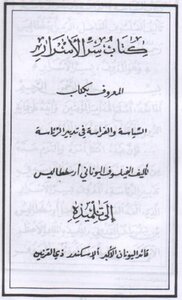 كتاب سر الأسرار
المعروف بكتاب
السياسة والفراسة في تدبير الرئاسة
تأليف الفيلسوف اليوناني أرسطاطاليس
إلى تلميذه
قائد اليونان الأكبر الإسكندر ذي القرنين